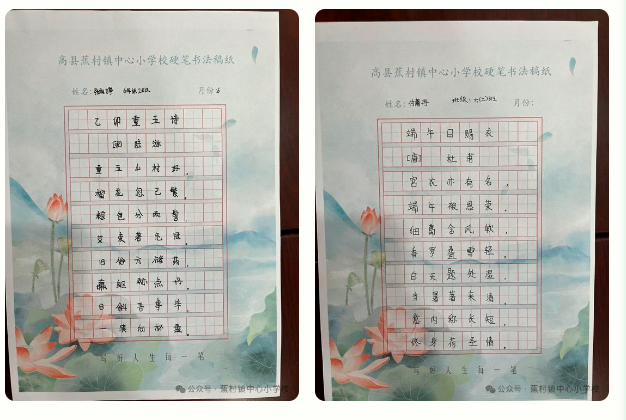 高县蕉村镇中心小学校硬笔书法稿纸
姓名: 月份:5
乙卯重五诗
重五山村好,
榴花忽已繁。
粽包分两髻
艾束著危冠
旧俗方储药
羸躯亦点丹
日斜吾事毕
一笑向杯盘。
写好人生每一笔
公众号·蕉村镇中心小学校
高县蕉村镇中心小学校硬笔书法稿纸
姓名: 班级:六(二)班 月份:
端午日赐衣
[唐] 杜甫
宫衣亦有名,
端午被恩荣。
细葛含风软
香罗叠雪轻。
自天题处湿
当暑著来清。
意内称长短
终身荷圣情。
写好人生每一笔
公众号·蕉村镇中心小学校